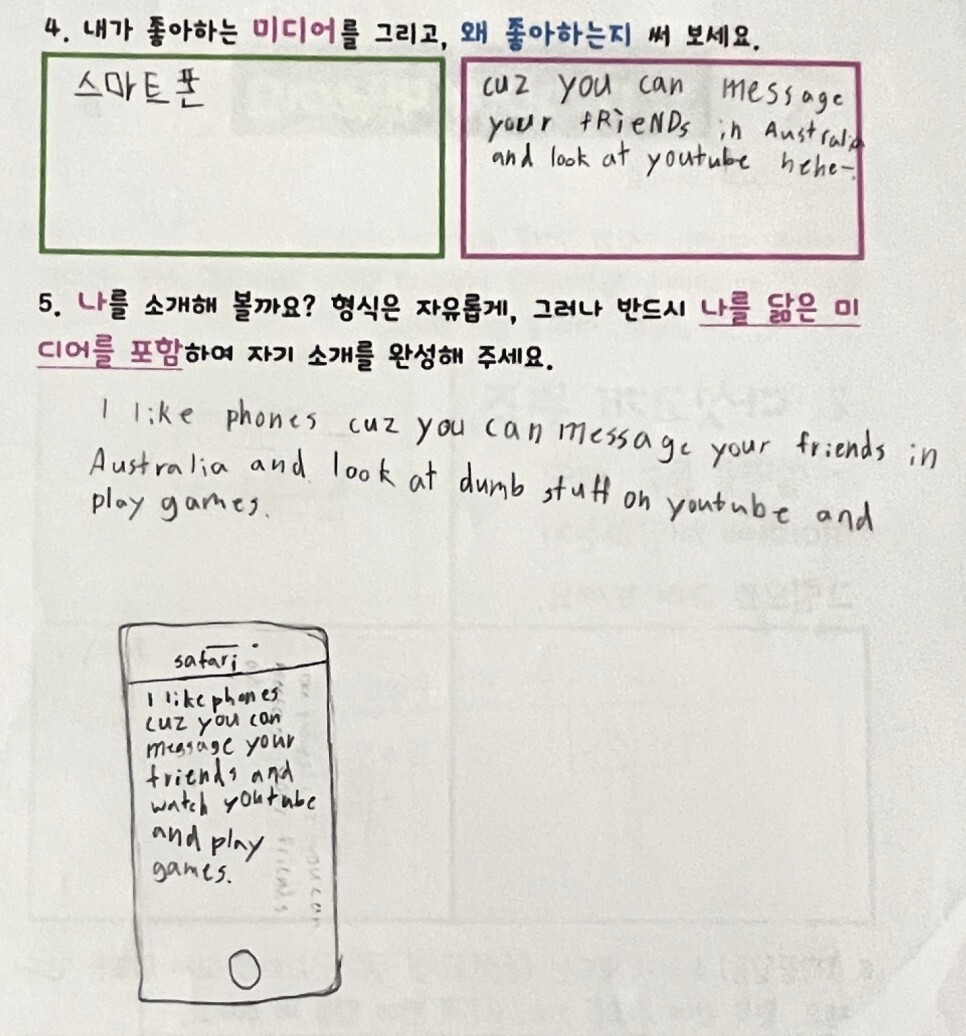 4. 내가 좋아하는 미디어를 그리고, 왜 좋아하는지 써 보세요.
스마트폰
cuz you can message
your fRieNDs in Australia
and look at youtube hehe-.
5. 나를 소개해 볼까요? 형식은 자유롭게, 그러나 반드시 나를 닮은 미
디어를 포함하여 자기 소개를 완성해 주세요.
I like phones cuz you can message your friends in
Australia and look at dumb stuff on youtube and
play games.
safari
I like phones
cuz you can
message your
friends and
watch youtube
and play
games.